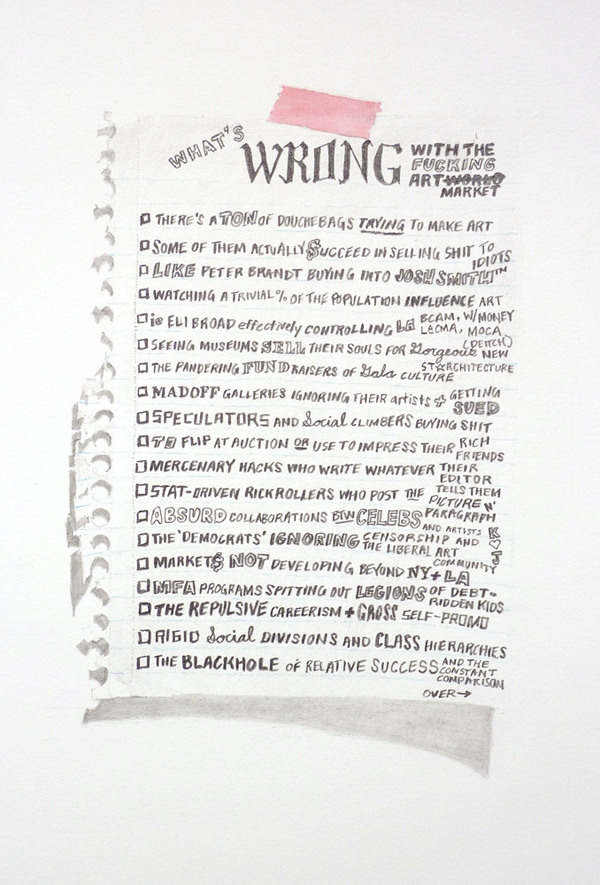 WHAT'S WRONG WITH THE
FUCKING
ART WORLD
MARKET
THERE'S A TON OF DOUCHEBAGS TRYING TO MAKE ART
SOME OF THEM ACTUALLY $UCCEED IN SELLING SHIT TO IDIOTS
LIKE PETER BRANDT BUYING INTO JOSH SMITH™
WATCHING A TRIVIAL % OF THE POPULATION INFLUENCE ART
ie ELI BROAD effectively CONTROLLING LA BCAM, W/MONEY LACMA, MOCA (DEITCH)
SEEING MUSEUMS SELL THEIR SOULS FOR Gorgeous NEW ST☆RCHITECTURE
THE PANDERING FUNDRAISERS OF Gala CULTURE
MADOFF GALLERIES IGNORING THEIR artists + GETTING SUED
SPECULATORS AND Social CLIMBERS BUYING SHIT
TO FLIP AT AUCTION OR USE TO IMPRESS THEIR RICH FRIENDS
MERCENARY HACKS WHO WRITE WHATEVER THEIR EDITOR TELLS THEM
STAT-DRIVEN RICKROLLERS WHO POST THE PICTURE N' PARAGRAPH
ABSURD COLLABORATIONS BTW CELEBS AND ARTISTS K♡J
THE 'DEMOCRATS' IGNORING CENSORSHIP AND THE LIBERAL ART COMMUNITY
MARKET$ NOT DEVELOPING BEYOND NY + LA
MFA PROGRAMS SPITTING OUT LEGIONS OF DEBT-RIDDEN KIDS
THE REPULSIVE CAREERISM + GROSS SELF-PROMO
RIGID Social DIVISIONS AND CLASS HIERARCHIES
THE BLACKHOLE OF RELATIVE SUCCESS AND THE CONSTANT COMPARISON
OVER→